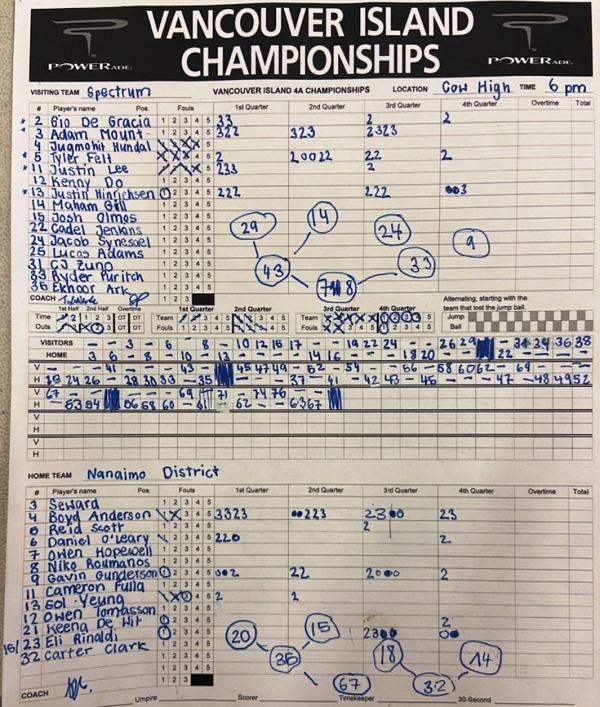 VANCOUVER ISLAND
CHAMPIONSHIPS
POWERADE
POWERADE
VISITING TEAM Spectrum VANCOUVER ISLAND 4A CHAMPIONSHIPS LOCATION Cow High TIME 6 pm
# Player's name Pos. Fouls 1st Quarter 2nd Quarter 3rd Quarter 4th Quarter Overtime Total
* 2 Gio De Gracia 1 2 3 4 5 33 2 2
* 3 Adam Mount 1 2 3 4 5 322 323 2323
4 Jugmohit Hundal
* 5 Tyler Felt 2 20022 22 2
* 11 Justin Lee 233 2
12 Kenny Do 1 2 3 4 5
* 13 Justin Hinrichsen 1 2 3 4 5 222 222 3
14 Maham Gill 1 2 3 4 5
15 Josh Olmos 1 2 3 4 5
22 Cadel Jenkins 1 2 3 4 5
24 Jacob Synesael 1 2 3 4 5
25 Lucas Adams 1 2 3 4 5
31 CJ Zuno 1 2 3 4 5
33 Ryder Puritch 1 2 3 4 5
35 Eknoor Ark 1 2 3 4 5
29 14 24 9
43 33
COACH 1 2 3
1st Half 2nd Half Overtime 1st Quarter 2nd Quarter 3rd Quarter 4th Quarter
Alternating, starting with the
team that lost the jump ball.
Time Outs Team Fouls Team Fouls Jump Ball
VISITORS - - 3 - 6 - 8 - - 10 12 15 17 - - 19 22 24 - - 26 29 - 31 34 36 38
HOME 3 6 - 8 - 10 - 13 - - - - 14 16 - - - 18 20 - - 22 - - - -
V - - - 41 - - - 43 - 45 47 49 - 52 - 54 - - 56 - 58 60 62 - 64 - - - -
H 39 24 26 - 28 30 33 - 35 - - - 37 - 41 - 42 43 - 45 - - - 47 - 48 49 52
V 67 - - - - - 69 71 - 74 76 - -
H - 53 54 56 58 60 - 61 - 62 - - 63 67
V
H
V
H
HOME TEAM Nanaimo District
# Player's name Pos. Fouls 1st Quarter 2nd Quarter 3rd Quarter 4th Quarter Overtime Total
3 Seward 1 2 3 4 5
4 Boyd Anderson 3 4 5 3323 223 23 0 23
5 Reid Scott 1 2 3 4 5 2
6 Daniel O'Leary 2 3 4 5 220 2
7 Owen Hopewell 1 2 3 4 5
8 Niko Roumanos 1 2 3 4 5
9 Gavin Gunderson 1 2 3 4 5 2 22 2 2
11 Cameron Fulla 1 2 3 4 5
13 Sol Yeung 3 4 5 2 2
12 Owen Tomasson 1 2 3 4 5
21 Keena De Wit 1 2 3 4 5 2
15/23 Eli Rinaldi 1 2 3 4 5 23
32 Carter Clark 1 2 3 4 5
20 15 18 14
35 32
67
COACH Umpire Scorer Timekeeper 30-Second